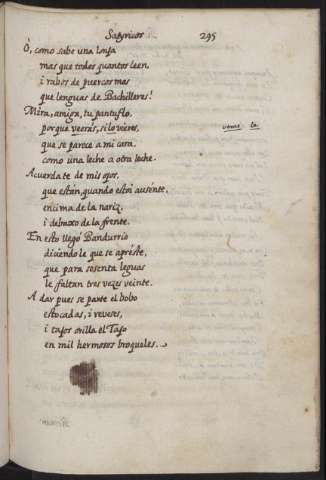 Satyricos.
295
O, como sabe una lonja
mas que todos quantos leen,
i rabos de puercos mas
que lenguas de Bachilleres!
Mira, amiga, tu pantuflo,
porque verás, si lo vieres,
que se parece a mi cara
como una leche a otra leche.
Acuerdate de mis ojos,
que están, quando estoi ausente,
encima de la nariz,
i debaxo de la frente.
En esto llegó Bandurrio
diciendole que se apréste,
que para sesenta leguas
le faltan tres vezes veinte.
A dar pues se parte el bobo
estocadas, i reveses,
i tajos orilla el Tajo
en mil hermosos broqueles.